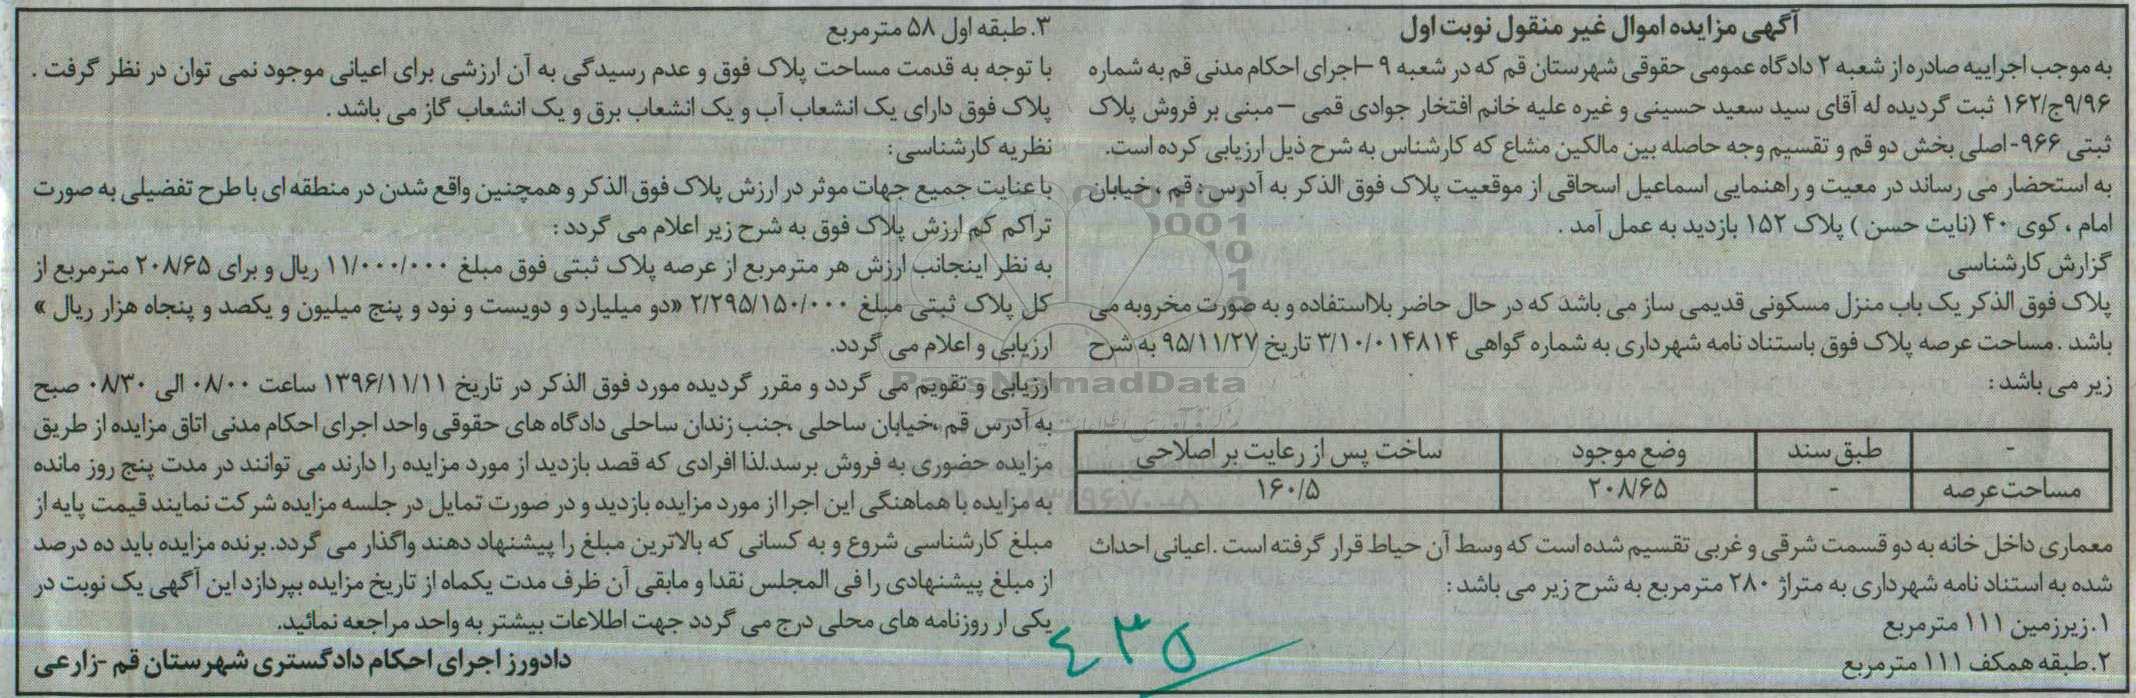 آگهی مزایده اموال غیر منقول نوبت اول
به موجب اجراییه صادره از شعبه ۲ دادگاه عمومی حقوقی شهرستان قم که در شعبه ۹ –اجرای احکام مدنی قم به شماره
۹/۹۶ج/۱۶۲ ثبت گردیده له آقای سید سعید حسینی و غیره علیه خانم افتخار جوادی قمی – مبنی بر فروش پلاک
ثبتی ۹۶۶- اصلی بخش دو قم و تقسیم وجه حاصله بین مالکین مشاع که کارشناس به شرح ذیل ارزیابی کرده است.
به استحضار می رساند در معیت و راهنمایی اسماعیل اسحاقی از موقعیت پلاک فوق الذکر به آدرس : قم ، خیابان
امام ، کوی ۴۰ (نایت حسن ) پلاک ۱۵۲ بازدید به عمل آمد .
گزارش کارشناسی
پلاک فوق الذکر یک باب منزل مسکونی قدیمی ساز می باشد که در حال حاضر بلااستفاده و به صورت مخروبه می
باشد . مساحت عرصه پلاک فوق باستناد نامه شهرداری به شماره گواهی ۳/۱۰/۰۱۴۸۱۴ تاریخ ۹۵/۱۱/۲۷ به شرح
زیر می باشد :
- طبق سند وضع موجود ساخت پس از رعایت بر اصلاحی
مساحت عرصه - ۲۰۸/۶۵ ۱۶۰/۵
معماری داخل خانه به دو قسمت شرقی و غربی تقسیم شده است که وسط آن حیاط قرار گرفته است . اعیانی احداث
شده به استناد نامه شهرداری به متراژ ۲۸۰ مترمربع به شرح زیر می باشد :
۱. زیرزمین ۱۱۱ مترمربع
۲. طبقه همکف ۱۱۱ مترمربع
۳. طبقه اول ۵۸ مترمربع
با توجه به قدمت مساحت پلاک فوق و عدم رسیدگی به آن ارزشی برای اعیانی موجود نمی توان در نظر گرفت .
پلاک فوق دارای یک انشعاب آب و یک انشعاب برق و یک انشعاب گاز می باشد .
نظریه کارشناسی :
با عنایت جمیع جهات موثر در ارزش پلاک فوق الذکر و همچنین واقع شدن در منطقه ای با طرح تفضیلی به صورت
تراکم کم ارزش پلاک فوق به شرح زیر اعلام می گردد :
به نظر اینجانب ارزش هر مترمربع از عرصه پلاک ثبتی فوق مبلغ ۱۱/۰۰۰/۰۰۰ ریال و برای ۲۰۸/۶۵ مترمربع از
کل پلاک ثبتی مبلغ ۲/۲۹۵/۱۵۰/۰۰۰ «دو میلیارد و دویست و نود و پنج میلیون و یکصد و پنجاه هزار ریال »
ارزیابی و اعلام می گردد.
ارزیابی و تقویم می گردد و مقرر گردیده مورد فوق الذکر در تاریخ ۱۳۹۶/۱۱/۱۱ ساعت ۰۸/۰۰ الی ۰۸/۳۰ صبح
به آدرس قم ،خیابان ساحلی ،جنب زندان ساحلی دادگاه های حقوقی واحد اجرای احکام مدنی اتاق مزایده از طریق
مزایده حضوری به فروش برسد.لذا افرادی که قصد بازدید از مورد مزایده را دارند می توانند در مدت پنج روز مانده
به مزایده با هماهنگی این اجرا از مورد مزایده بازدید و در صورت تمایل در جلسه مزایده شرکت نمایند قیمت پایه از
مبلغ کارشناسی شروع و به کسانی که بالاترین مبلغ را پیشنهاد دهند واگذار می گردد. برنده مزایده باید ده درصد
از مبلغ پیشنهادی را فی المجلس نقدا و مابقی آن ظرف مدت یکماه از تاریخ مزایده بپردازد این آگهی یک نوبت در
یکی ار روزنامه های محلی درج می گردد جهت اطلاعات بیشتر به واحد مراجعه نمائید.
دادورز اجرای احکام دادگستری شهرستان قم -زارعی
۴۳۵
ParsNamadData